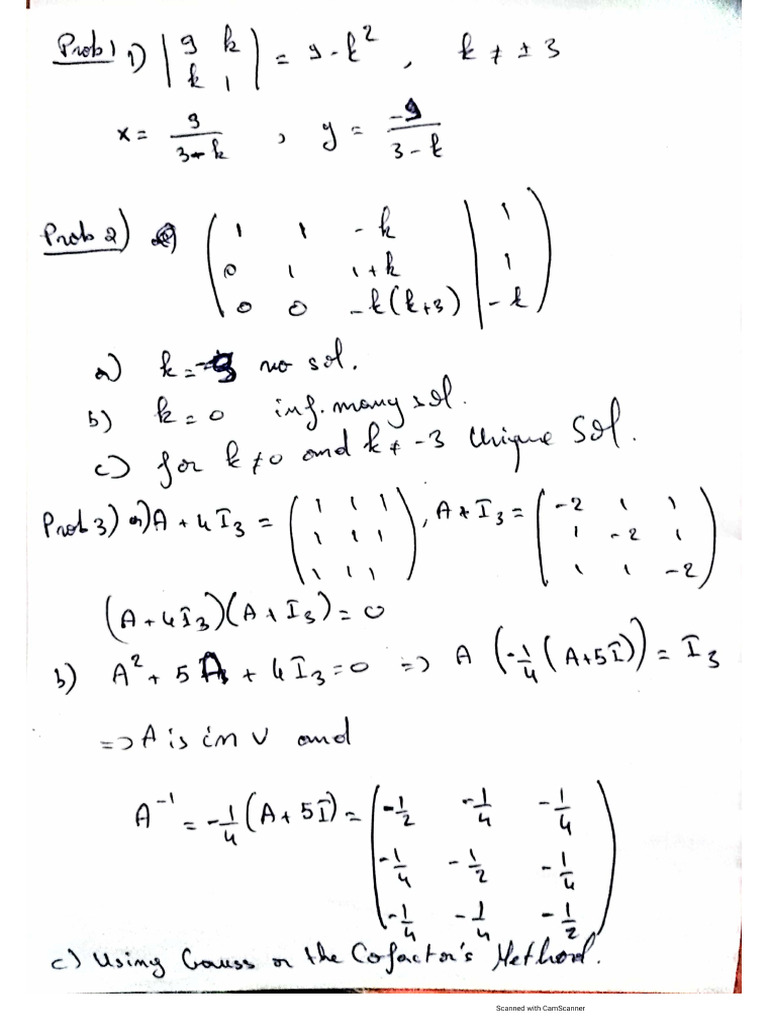 Prob1 1) | 9 k | = 9 - k², k ≠ ± 3
| k 1 |
x = 9/(3+k) , y = -9/(3-k)
Prob 2) ( 1 1 -k | 1 )
( 0 1 1+k | 1 )
( 0 0 -k(k+3) | -k )
a) k = -3 no sol.
b) k = 0 inf. many sol.
c) for k ≠ 0 and k ≠ -3 Unique Sol.
Prob 3) a) A + 4I₃ = ( 1 1 1 ) , A + I₃ = ( -2 1 1 )
( 1 1 1 ) ( 1 -2 1 )
( 1 1 1 ) ( 1 1 -2 )
(A + 4I₃)(A + I₃) = 0
b) A² + 5A + 4I₃ = 0 => A (-1/4 (A+5I)) = I₃
=> A is inv and
A⁻¹ = -1/4 (A + 5I) = ( -1/2 -1/4 -1/4 )
( -1/4 -1/2 -1/4 )
( -1/4 -1/4 -1/2 )
c) Using Gauss or the Cofactor's Method.
Scanned with CamScanner